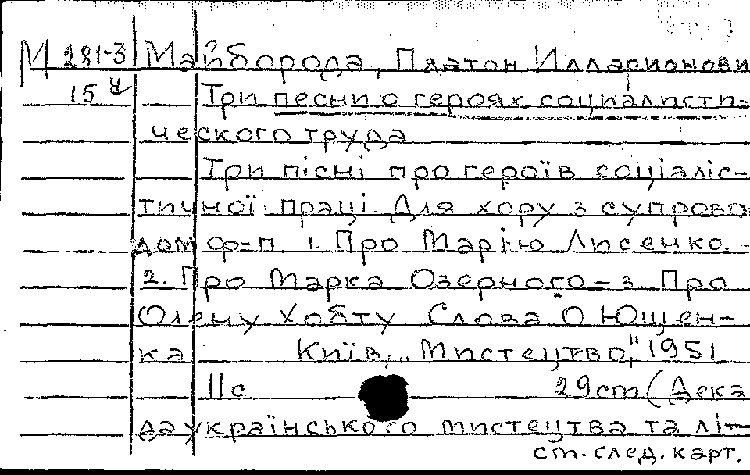 М 281-3 Майборода, Платон Илларионови
15 Три песни о героях социалисти-
ческого труда
Три пісні про героїв соціаліс-
тичної праці Для хору з супрово
дом ф-п. 1. Про Марію Лисенко. -
2. Про Марка Озерного - 3 Про
Олену Хобту Слова О Ющен-
ка Київ, „Мистецтво", 1951
11с 29cm (Дека
да українського мистецтва та лі-
ст. след. карт.